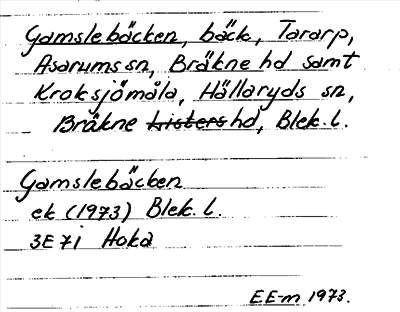 Gamslebäcken, bäck, Tararp,
Asarums sn, Bräkne hd samt
Kroksjömåla, Hällaryds sn,
Bräkne Listers hd, Blek. l.
Gamslebäcken
ek (1973) Blek. l.
3E 7i Hoka
EE-m 1973.